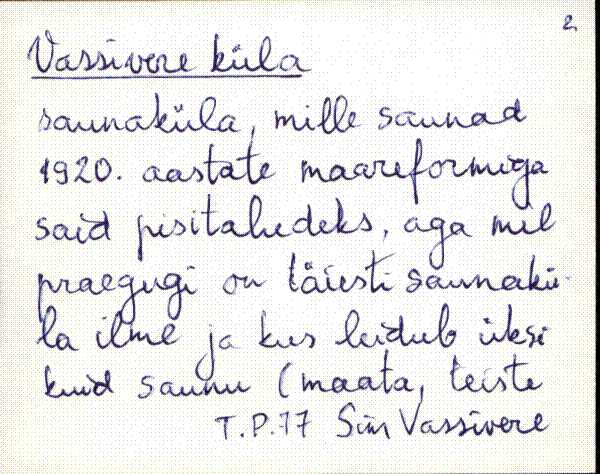 2.
Vassivere küla
saunaküla, mille saunad
1920. aastate maareformiga
said pisitaludeks, aga mil
praegugi on täiesti saunakü-
la ilme ja kus leidub üksi
kuid saunu (maata, teiste
T.P.77 Sim Vassivere